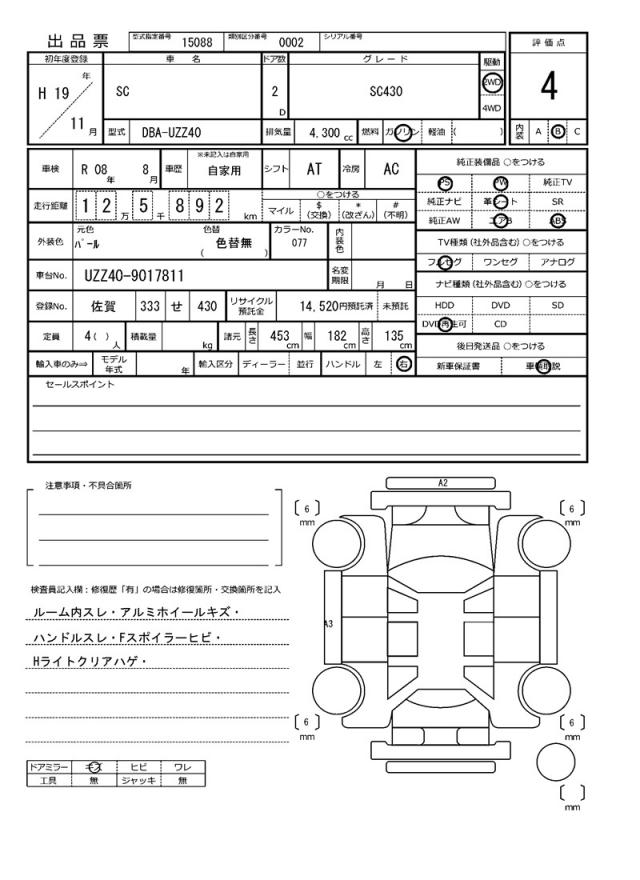 出品票 型式指定番号 15088 類別区分番号 0002 シリアル番号
評価点
4
内装 A B C
初年度登録 車名 ドア数 グレード 駆動
H 19 年 SC 2 D SC430 2WD
4WD
11 月 型式 DBA-UZZ40 排気量 4,300 cc 燃料 ガソリン 軽油 ( )
車検 R 08 年 8 月 車歴 ※未記入は自家用 自家用 シフト AT 冷房 AC
走行距離 1 2 万 5 千 8 9 2 km ○をつける
マイル $ (交換) * (改ざん) # (不明)
外装色 元色 パール 色替 ( 色替無 ) カラーNo. 077 内装色
車台No. UZZ40-9017811 名変期限 月 日
登録No. 佐賀 333 せ 430 リサイクル預託金 14,520円預託済 未預託
定員 4( ) 人 積載量 kg 諸元 長さ 453 cm 幅 182 cm 高さ 135 cm
輸入車のみ⇒ モデル年式 年 輸入区分 ディーラー 並行 ハンドル 左 右
純正装備品 ○をつける
PS PW 純正TV
純正ナビ 革シート SR
純正AW エアB ABS
TV種類 (社外品含む) ○をつける
フルセグ ワンセグ アナログ
ナビ種類 (社外品含む) ○をつける
HDD DVD SD
DVD再生可 CD
後日発送品 ○をつける
新車保証書 車輌取説
セールスポイント
注意事項・不具合箇所
検査員記入欄：修復歴「有」の場合は修復箇所・交換箇所を記入
ルーム内スレ・アルミホイールキズ・
ハンドルスレ・Fスポイラーヒビ・
Hライトクリアハゲ・
ドアミラー キズ ヒビ ワレ
工具 無 ジャッキ 無
A2
6 mm
6 mm
A3
6 mm
6 mm
mm